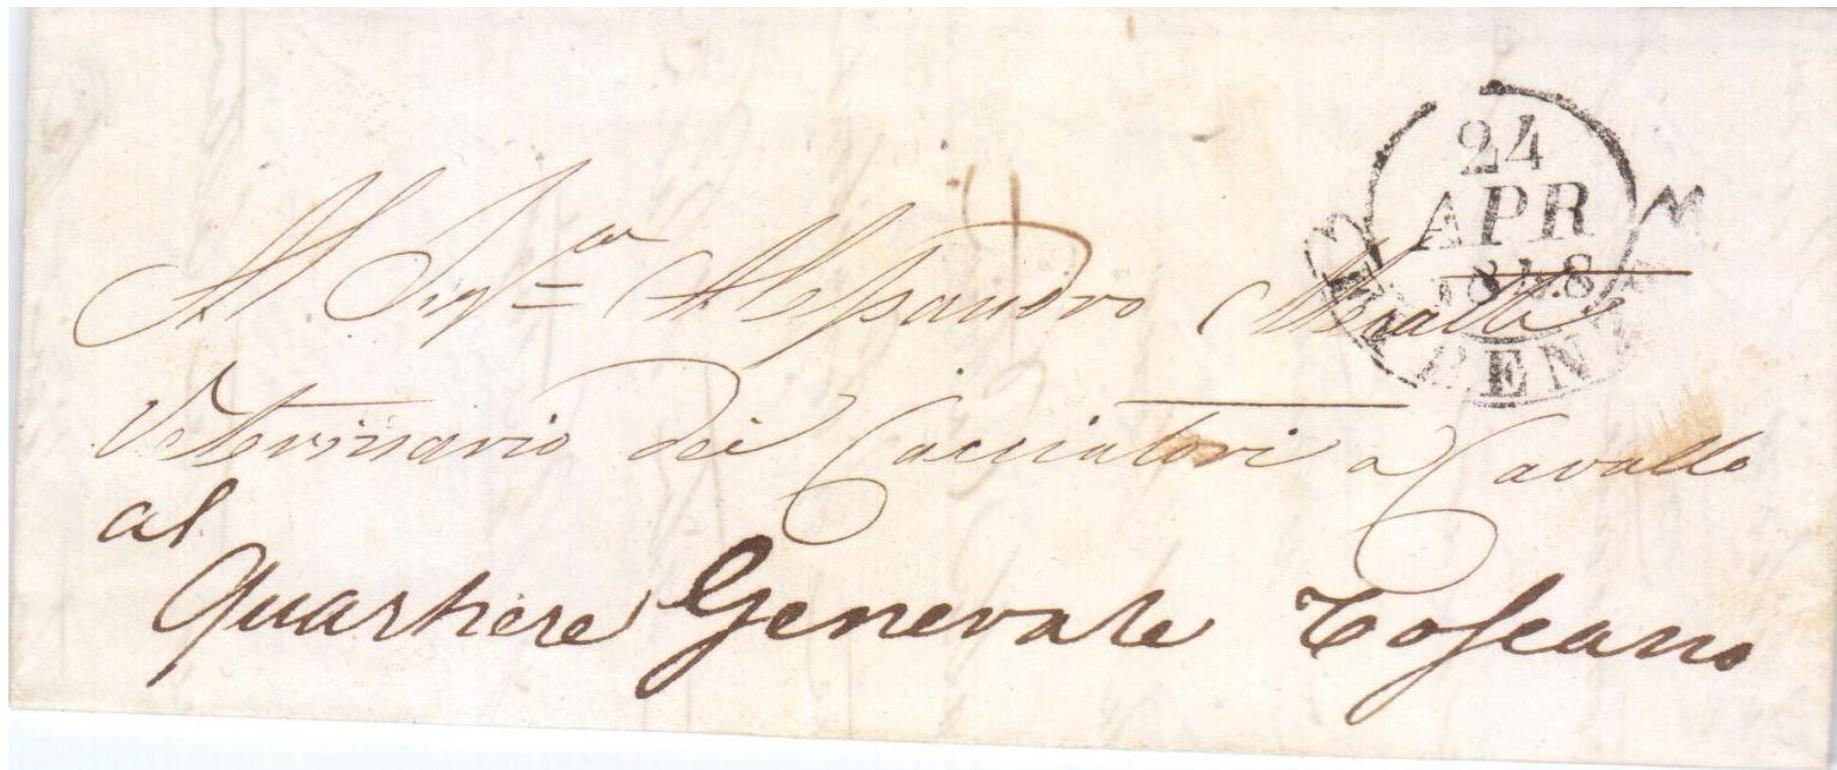 24
APR
1848
FIRENZE
Al Sig.or Alessandro
Veterinario dei Cacciatori a Cavallo
al
Quartiere Generale Toscano